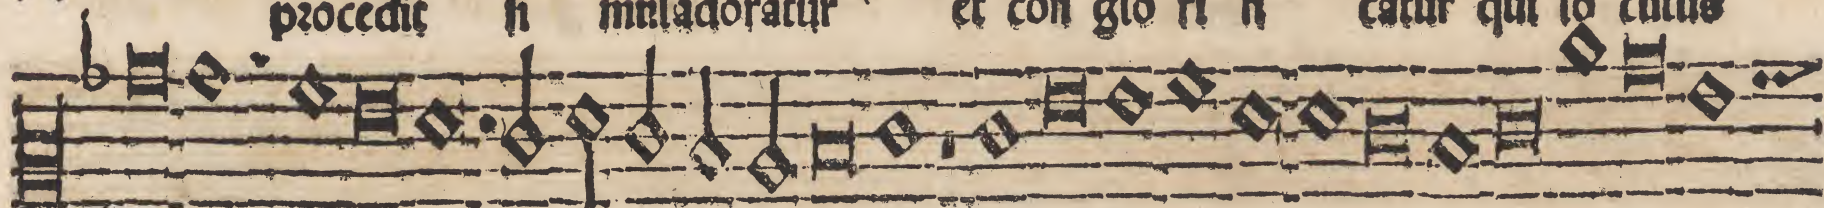 procedit si mul adoratur et con glo ri fi catur qui lo cutus